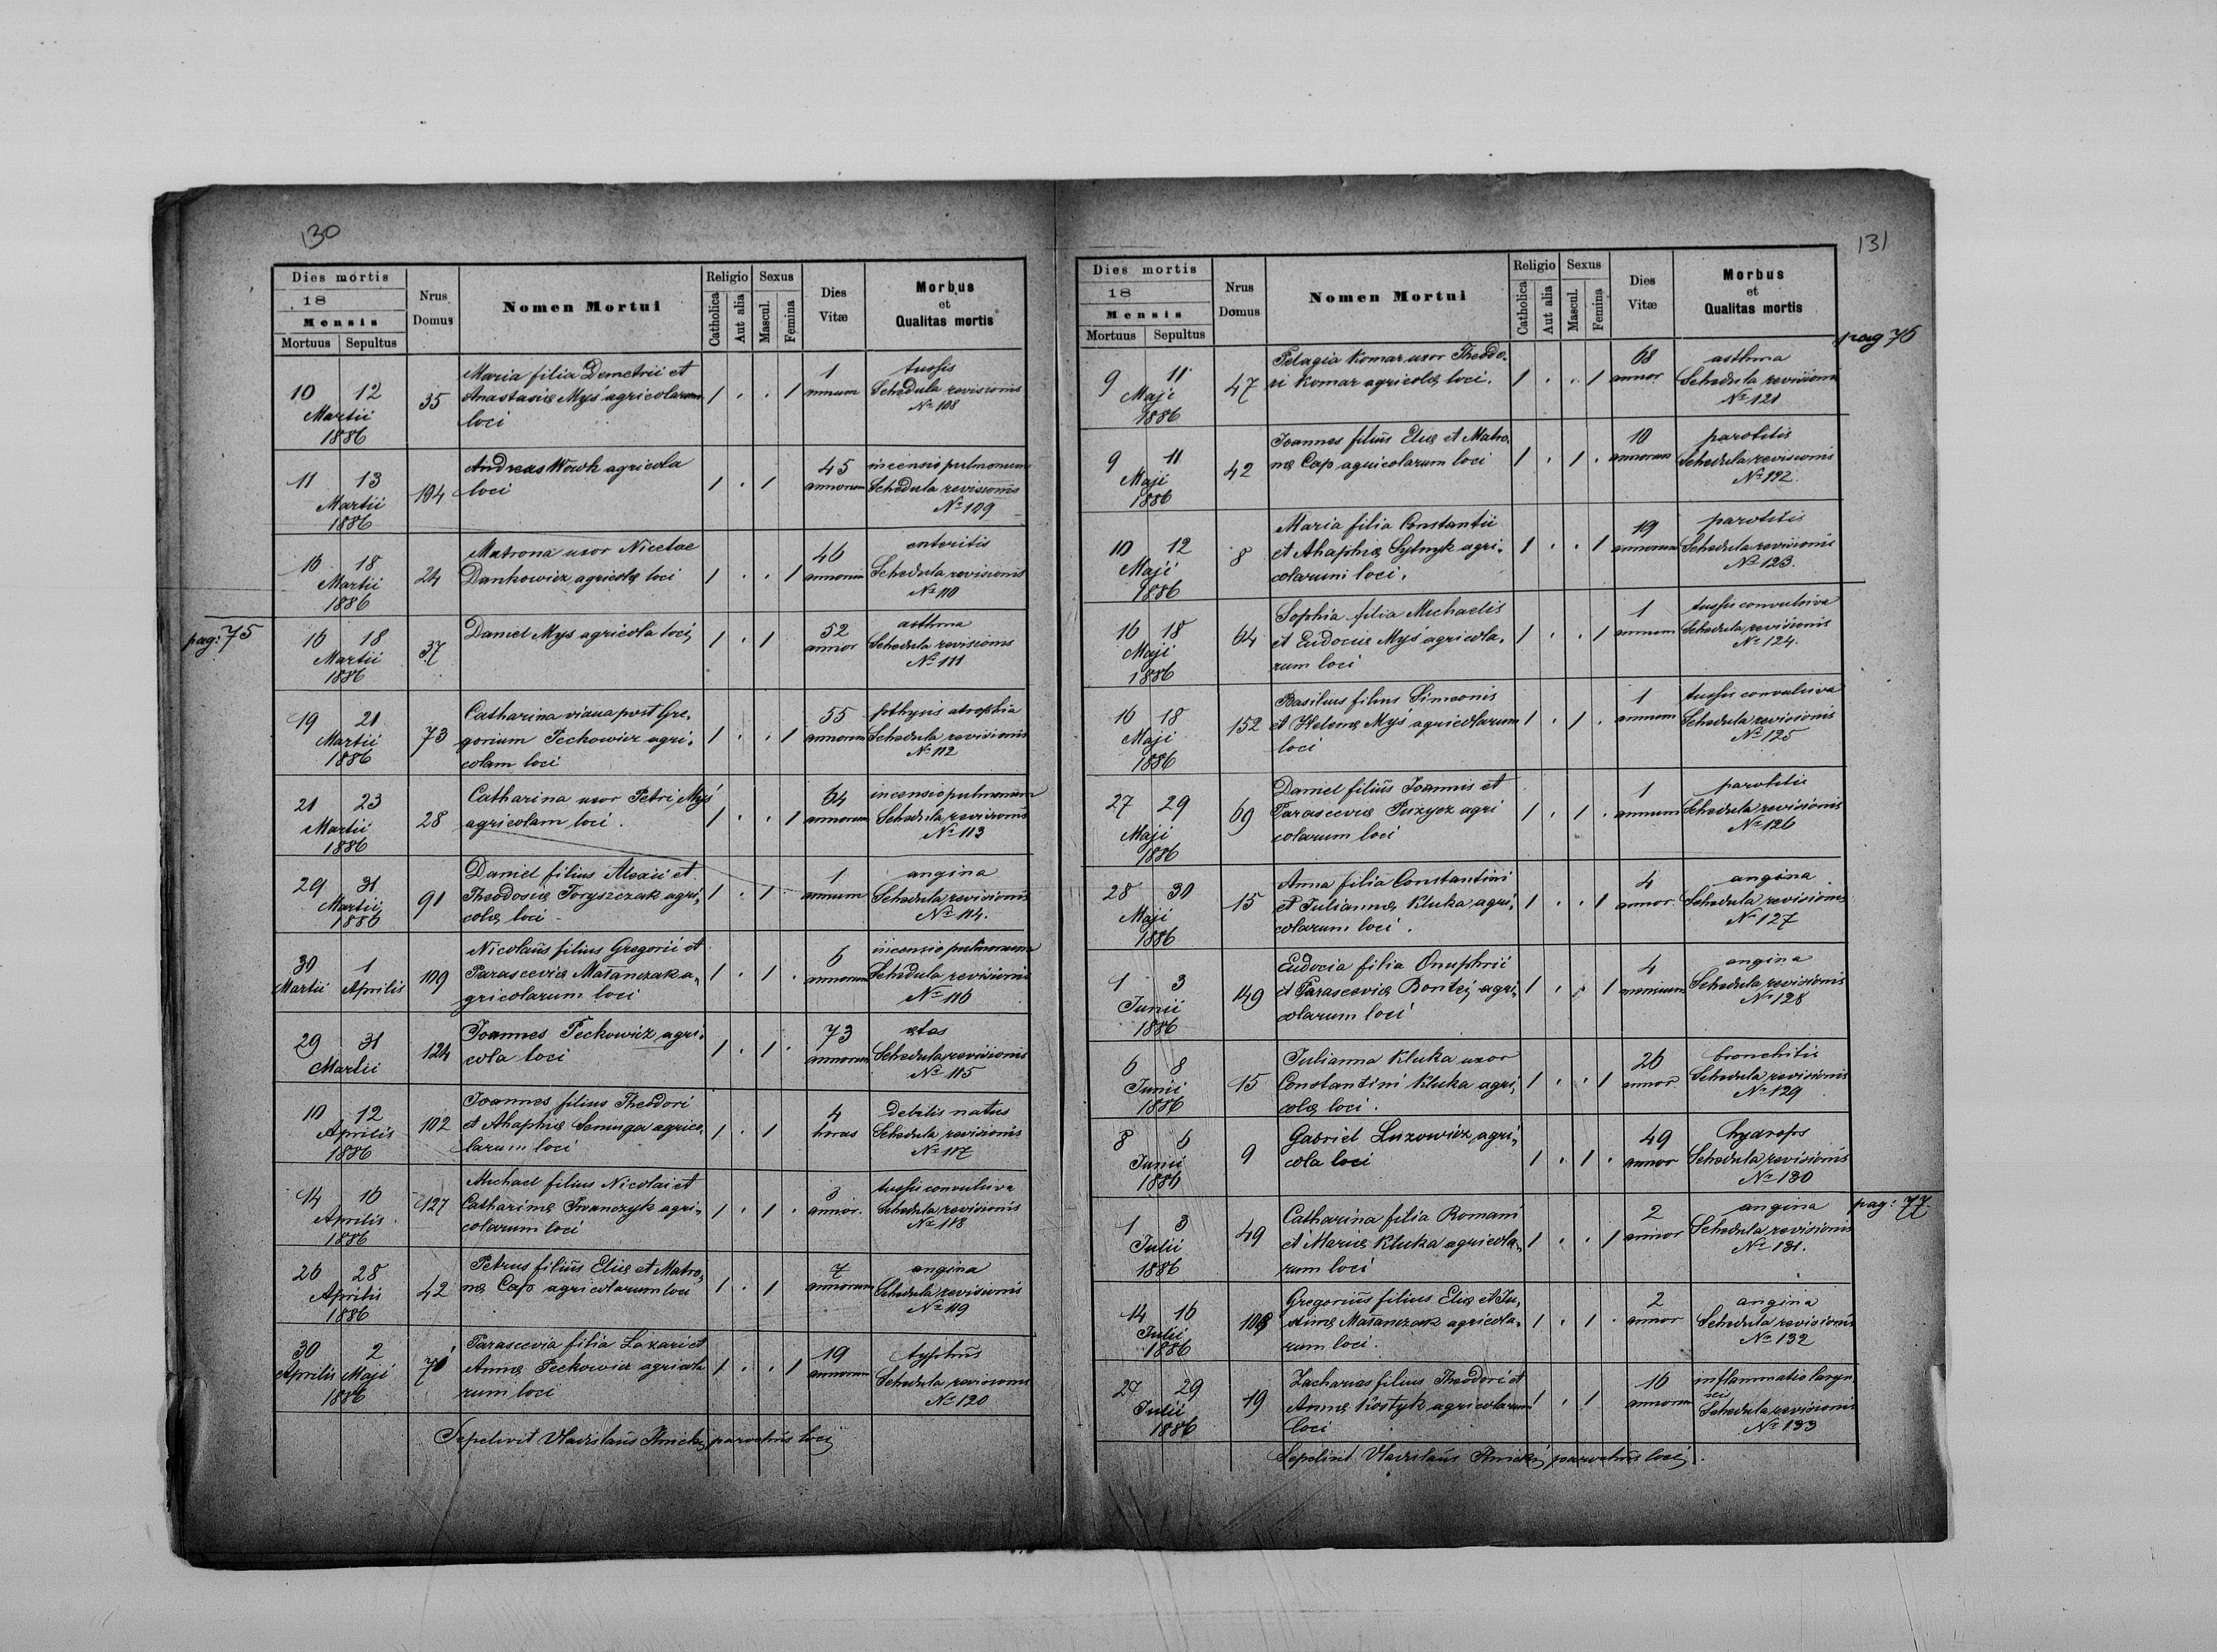 130
Dies mortis
18
Mensis
Mortuus Sepultus
Nrus
Domus
Nomen Mortui
Religio Sexus
Catholica Aut alia Mascul. Femina
Dies
Vitæ
Morbus
et
Qualitas mortis
Maria filia Demetrii et 1 tussis
10 12 35 Anastasiæ Myś agricolarum 1 . . 1 annum Schedula revisionis
Martii loci № 108
1886
Andreas Wowk agricola 45 incensio pulmonum
11 13 104 loci 1 . 1 annorum Schedula revisionis
Martii № 109
1886
Matrona uxor Nicetae 46 enteritis
16 18 24 Dankowicz agricolæ loci 1 . . 1 annorum Schedula revisionis
Martii № 110
1886
pag: 75
Daniel Mys agricola loci 52 asthma
16 18 37 1 . 1 annor Schedula revisionis
Martii № 111
1886
Catharina vidua post Gre- 55 pthysis atrophia
19 21 73 gorium Peckowicz agri- 1 . . 1 annorum Schedula revisionis
Martii colam loci № 112
1886
Catharina uxor Petri Myś 64 incensio pulmonum
21 23 28 agricolam loci . 1 . . 1 annorum Schedula revisionis
Martii № 113
1886
Daniel filius Alexii et 1 angina
29 31 91 Theodosiæ Toryszczak agri- 1 . 1 . annum Schedula revisionis
Martii colæ loci № 114.
1886
Nicolaus filius Gregorii et 6 incensio pulmonum
30 1 109 Parasceviæ Matanczak a- 1 . 1 . annorum Schedula revisionis
Martii Aprilis gricolarum loci № 116
29 31 124 Joannes Peckowicz agri- 73 ætas
Martii cola loci 1 . 1 . annorum Schedula revisionis
№ 115
Joannes filius Theodori 4 debilis natus
10 12 102 et Ahaphiæ agrico- 1 . 1 horas Schedula revisionis
Aprilis larum loci № 117
1886
Michael filius Nicolai et 3 tussis convulsiva
14 16 127 Catharinæ Iwanczyk agri- 1 . 1 . annor. Schedula revisionis
Aprilis colarum loci № 118
1886
Petrus filius Eliæ et Matro- 7 angina
26 28 42 næ Cap agricolarum loci 1 . 1 annorum Schedula revisionis
Aprilis № 119
1886
Parascevia filia Lazari et 19 typhus
30 2 71 Annæ Peckowicz agricola 1 . . 1 annorum Schedula revisionis
Aprilis Maji rum loci № 120
1886
Sepelivit Vladislaus parochus loci
131
Dies mortis
18
Mensis
Mortuus Sepultus
Nrus
Domus
Nomen Mortui
Religio Sexus
Catholica Aut alia Mascul. Femina
Dies
Vitæ
Morbus
et
Qualitas mortis
pag 76
Pelagia Komar uxor Theodo- 68 asthma
9 11 47 ri Komar agricolæ loci. 1 . . 1 annor Schedula revisionis
Maji № 121
1886
Joannes filius Eliæ et Matro- 10 parotitis
9 11 42 næ Cap agricolarum loci 1 . 1 . annorum Schedula revisionis
Maji № 122.
1886
Maria filia Constantii 19 parotitis
10 12 8 et Ahaphiæ Sytnyk agri- 1 . . 1 annorum Schedula revisionis
Maji colarum loci. № 123.
1886
Sophia filia Michaelis 1 tussis convulsiva
16 18 64 et Eudociæ Myś agricola- 1 . . 1 annum Schedula revisionis
Maji rum loci № 124.
1886
Basilius filius Simeonis 1 tussis convulsiva
16 18 152 et Helenæ Myś agricolarum 1 . 1 . annum Schedula revisionis
Maji loci № 125
1886
Daniel filius Joannis et 1 parotitis
27 29 69 Parasceviæ Puzycz agri 1 . 1 . annum Schedula revisionis
Maji colarum loci № 126
1886
Anna filia Constantini 4 angina
28 30 15 et Juliannæ Kluka agri- 1 . . 1 annor. Schedula revisionis
Maji colarum loci . № 127
1886
Eudocia filia Onuphrii 4 angina
1 3 149 et Parasceviæ agri- 1 . . 1 Schedula revisionis
Junii colarum loci № 128
1886
Julianna Kluka uxor 26 bronchitis
6 8 15 Constantini Kluka agri- 1 . . 1 annor Schedula revisionis
Junii colæ loci . № 129
1886
Gabriel Luzowicz agri- 49 hydrops
8 6 9 cola loci 1 . 1 . annor Schedula revisionis
Junii № 130
1886
pag: 77.
Catharina filia Romani 2 angina
1 3 49 et Mariæ Kluka agricola- 1 . . 1 annor Schedula revisionis
Julii rum loci № 131.
1886
Gregorius filius Eliæ et Ju- 2 angina
14 16 108 stinæ Matanczak agricola- 1 . 1 . annor Schedula revisionis
Julii rum loci . № 132
1886
Zacharias filius Theodori et 16 inflammatio laryn-
27 29 19 Annæ Kostyk agricolarum 1 . 1 annorum Schedula revisionis
Julii loci № 133
1886
Sepelivit Vladislaus parochus loci .